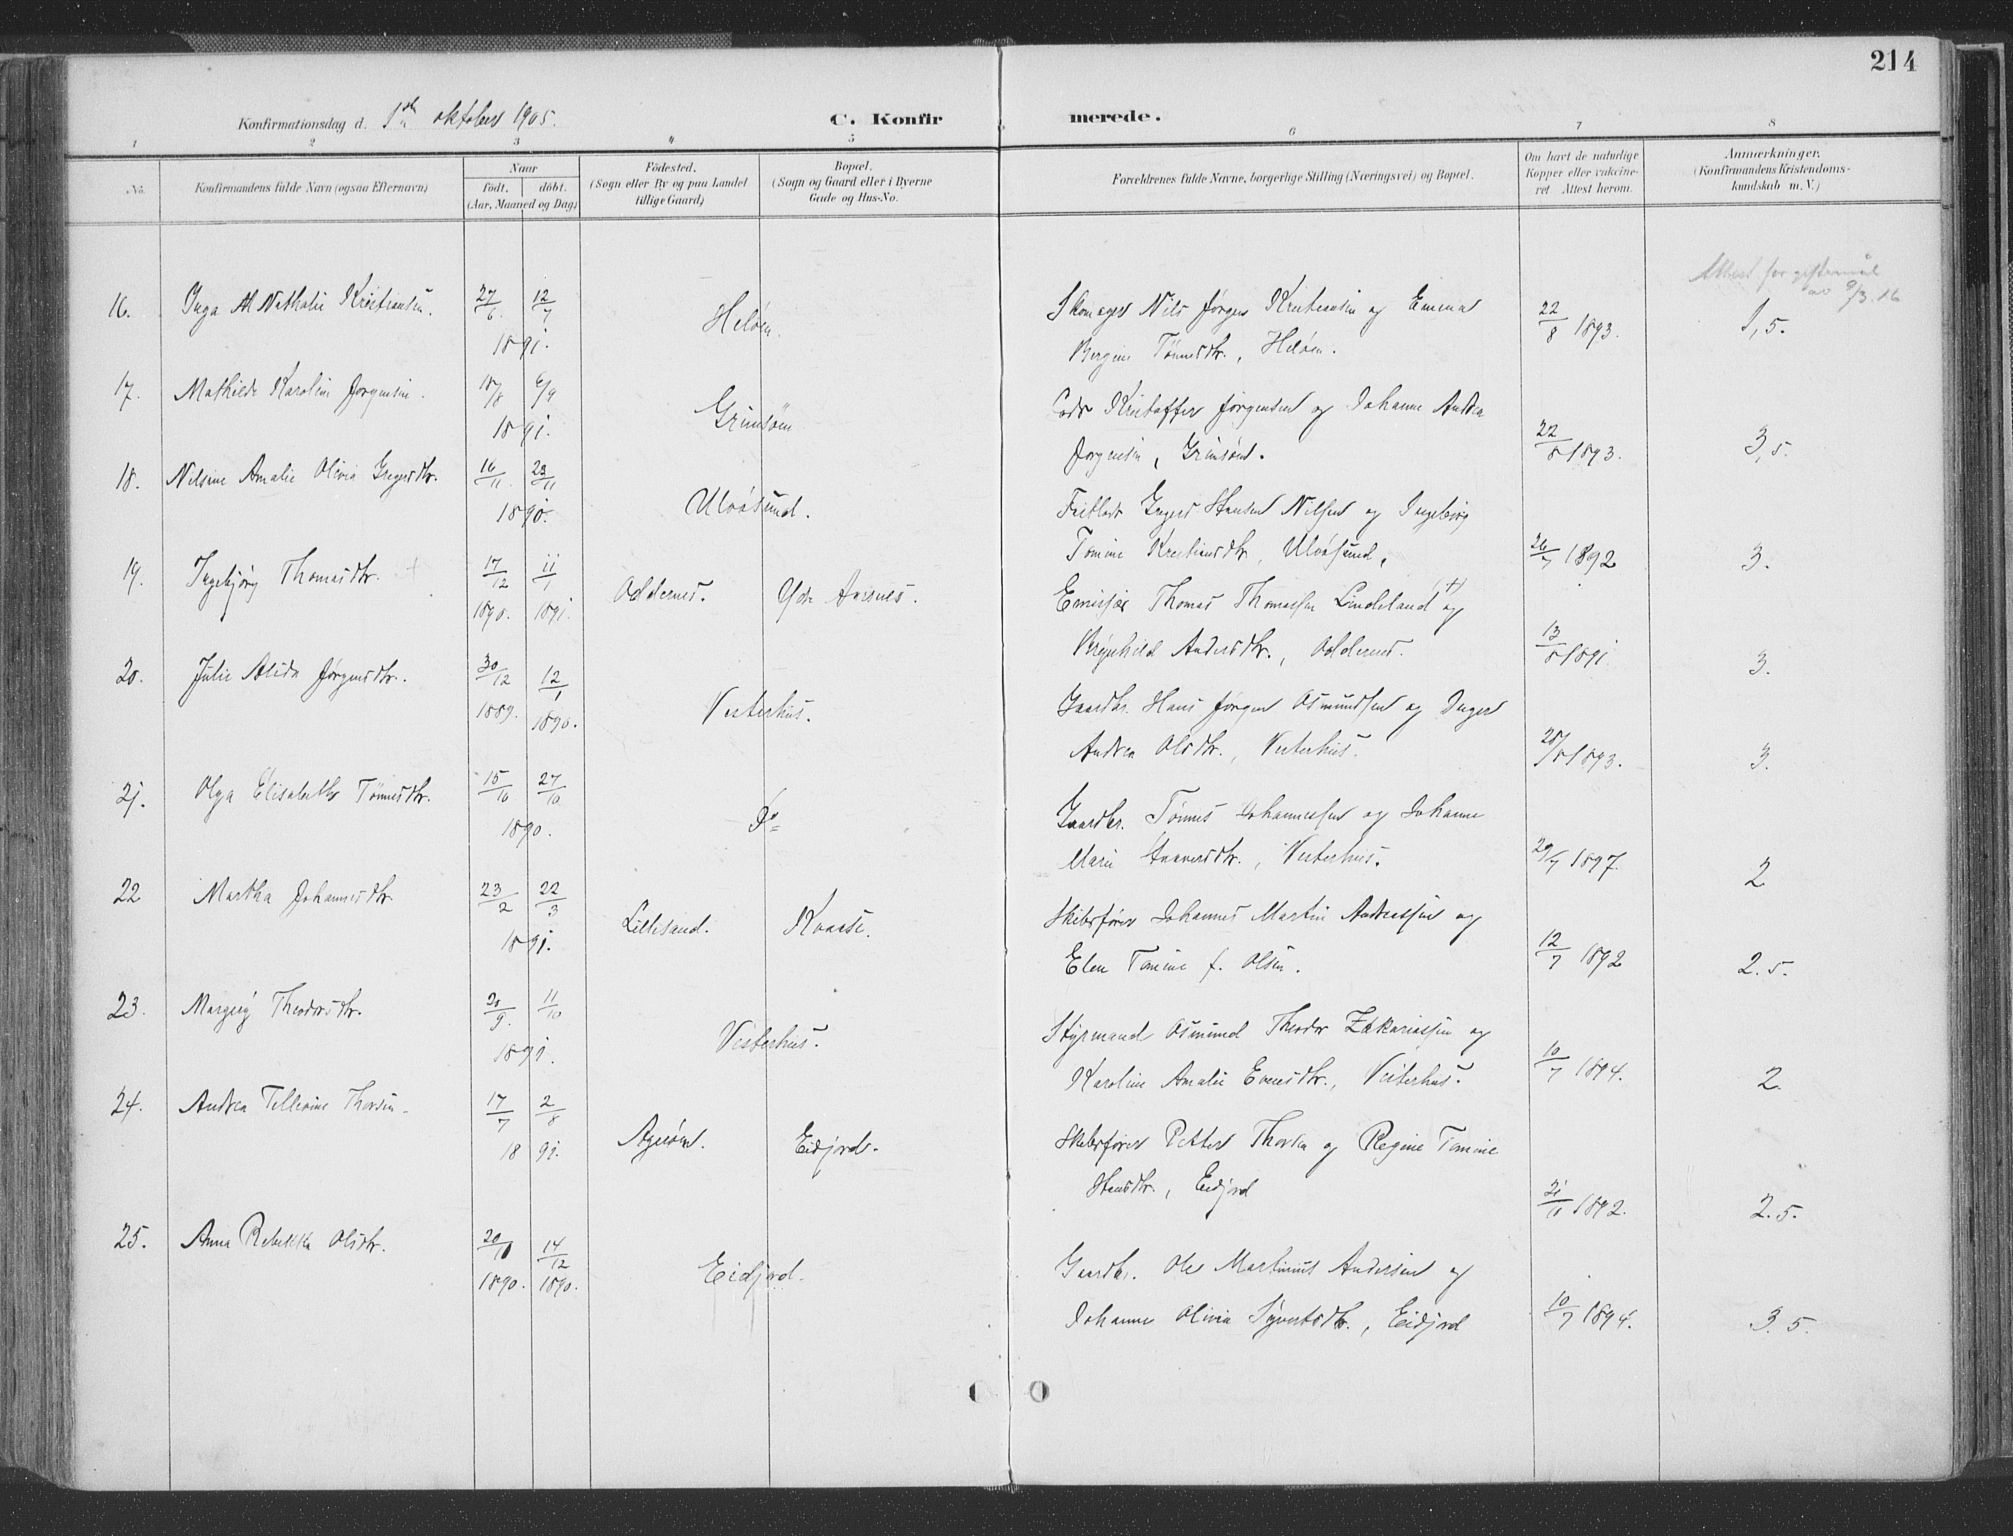 214
Konfirmationsdag d. 1ste oktober 1905.
C. Konfirmerede.
1 2 3 4 5 6 7 8
No.
Konfirmandens fulde Navn (ogsaa Efternavn)
Naar
født. døbt.
(Aar, Maaned og Dag)
Födested.
(Sogn eller By og paa Landet
tillige Gaard)
Bopæl.
(Sogn og Gaard eller i Byerne
Gade og Hus-No.
Forældrenes fulde Navne, borgerlige Stilling (Næringsvei) og Bopæl.
Om havt de naturlige
Kopper eller vakcine-
ret Attest herom.
Anmærkninger.
(Konfirmandens Kristendoms-
kundskab m. V.)
Attest for giftermål
av 9/3.16
16. Inga M Nathalie Kristiansen. 27/6 12/7 1891. Heløen. Skomager Nils Jørgen Kristiansen og Emma
Bergine Tønnesdtr., Heløen. 22/8 1893. 1,5.
17. Mathilde Karoline Jørgensen. 18/8 6/9 1891. Grimsøen Kristoffer Jørgensen og Johanne Andrea
Jørgensen, Grimsøen. 22/8 1893. 3,5.
18. Nilsine Amalie Olivia Gregersdtr. 16/11 23/11 1890. Ulvøsund. Hansen Nilsen og Ingeborg
Tomine Kristiansdtr., Ulvøsund. 26/7 1892 3.
19. Ingebjørg Thomasdtr. 17/12 1890. 11/1 1891. Oddernes. Ydre Aaresnes. Emissær Thomas Thomassen Lindeland (+) og
Brynhild Andersdtr., Oddernes. 13/8 1891. 3.
20. Julie Alida Jørgensdtr. 30/12 1889. 12/1 1890. Vesterhus. Gaardbr. Hans Jørgen Osmundsen og Inger
Andrea Olsdtr., Vesterhus. 28/8 1893. 3.
21. Olga Elisabeth Tønnesdtr. 15/10 27/10 1890. Do Gaardbr. Tønnes Johannessen og Johanne
Marie, Vesterhus. 29/7 1897. 2
22 Martha Johannesdtr. 23/2 22/3 1891. Lillesand. Kvaase. Skibsfører Johannes Martin Andreassen og
Elen Tomine f. Olsen. 12/7 1892 2.5.
23. Margerg Theodorsdtr. 20/9. 11/10 1891. Vesterhus. Styrmand Osmund Theodor Zakariassen og
Karoline Amalie Evensdtr., Vesterhus. 10/7 1894. 2.
24. Andrea Tellevine Thorsen. 17/7 2/8 1891. Agerøen. Eidjord. Skibsfører Petter Thorsen og Regine Tomine
Hansdtr., Eidjord 21/11 1892. 2.5.
25. Anna Rebekka Olsdtr. 20/11 1890. 14/12 1890. Eidjord. Gaardbr. Ole Martinius Andersen og
Johanne Olivia Syvertsdtr., Eidjord 10/7 1894. 3.5.